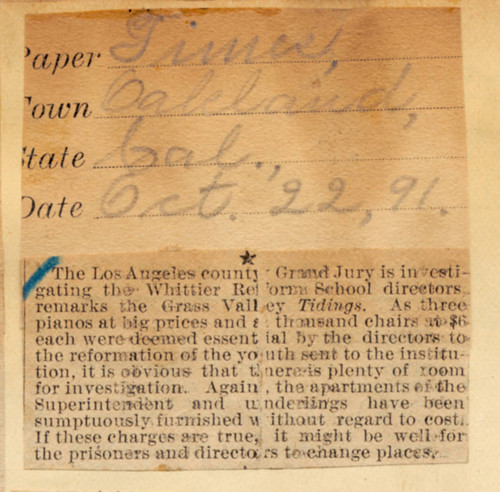 Paper Times,
Town Oakland,
State Cal.,
Date Oct. 22, 91.
The Los Angeles county Grand Jury is investi-
gating the Whittier Reform School directors,
remarks the Grass Valley Tidings. As three
pianos at big prices and a thousand chairs at $6
each were deemed essential by the directors to
the reformation of the youth sent to the institu-
tion, it is obvious that there is plenty of room
for investigation. Again, the apartments of the
Superintendent and underlings have been
sumptuously furnished without regard to cost.
If these charges are true, it might be well for
the prisoners and directors to change places.